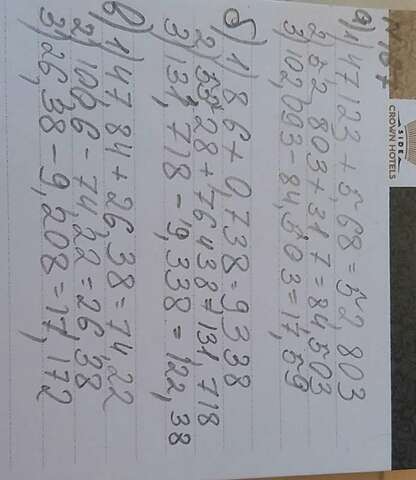 SIDE
CROWN HOTELS
а) 1) 47,123 + 5,68 = 52,803
2) 52,803 + 31,7 = 84,503
3) 102,093 - 84,503 = 17,59
б) 1) 8,6 + 0,738 = 9,338
2) 55,28 + 76,438 = 131,718
3) 131,718 - 9,338 = 122,38
в) 1) 47,84 + 26,38 = 74,22
2) 100,6 - 74,22 = 26,38
3) 26,38 - 9,208 = 17,172